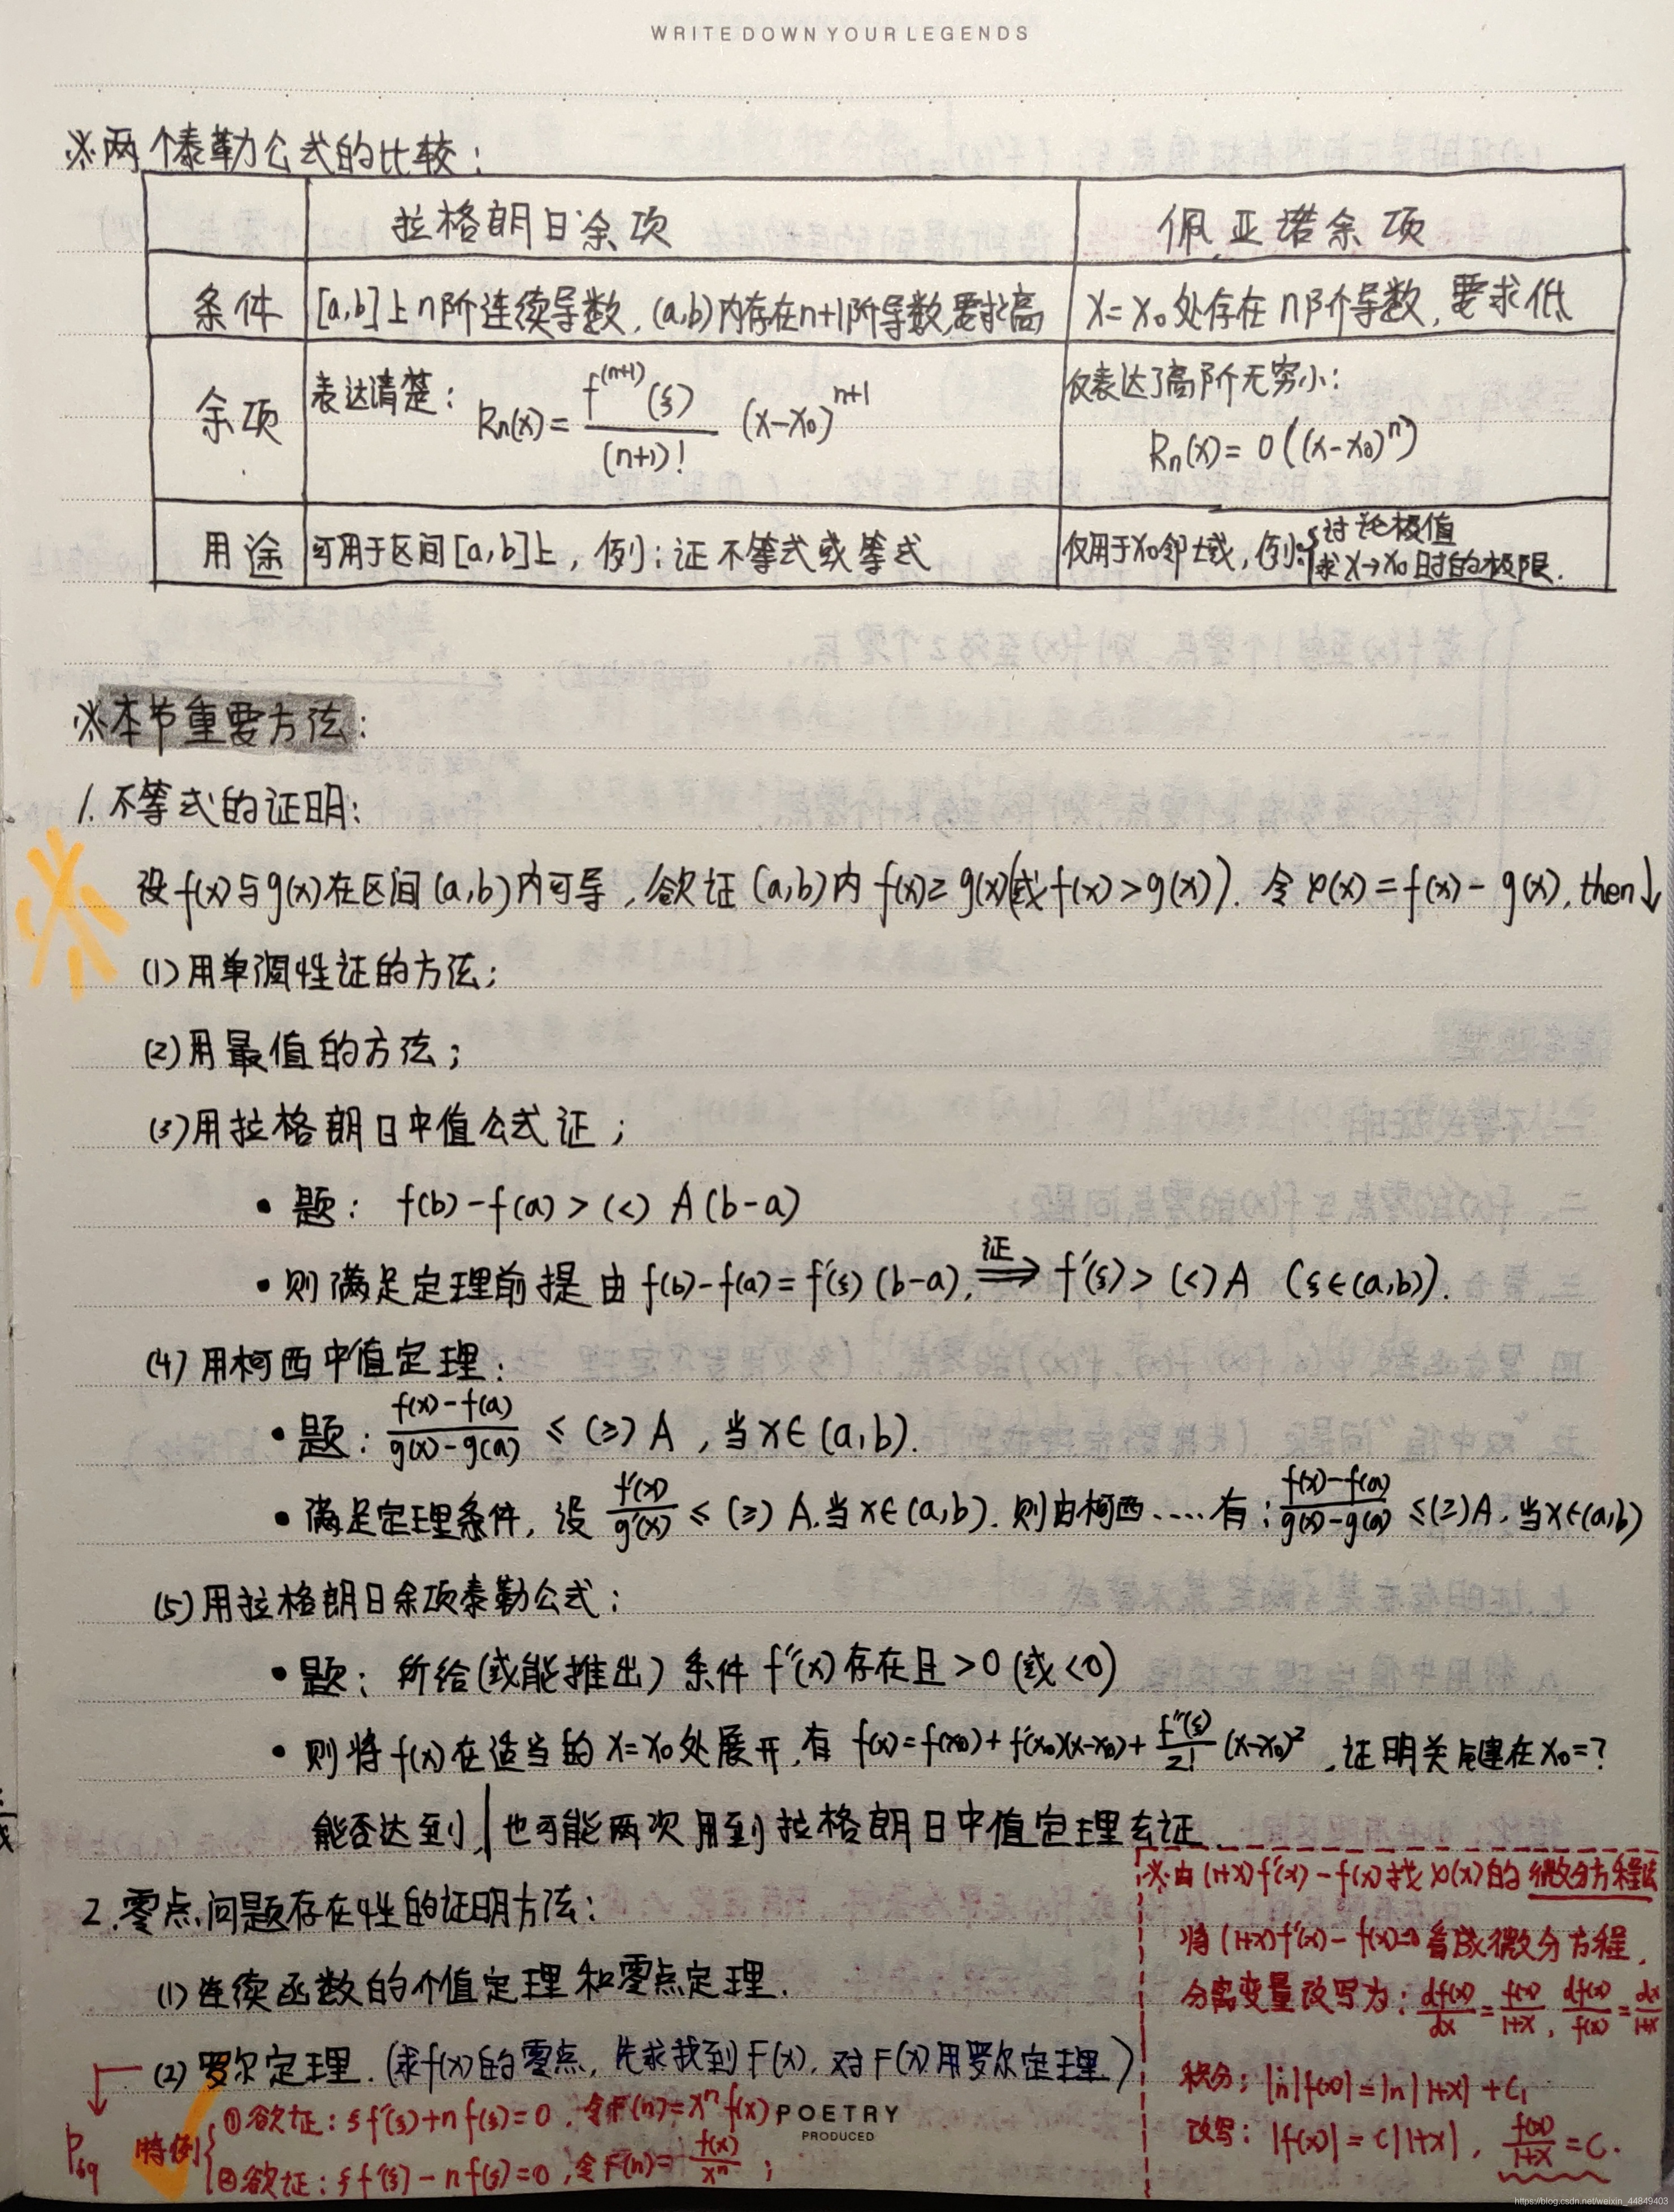 WRITE DOWN YOUR LEGENDS
※两个泰勒公式的比较：
拉格朗日余项 佩亚诺余项
条件 [a,b]上n阶连续导数，(a,b)内存在n+1阶导数，要求高 x=x₀处存在n阶导数，要求低
余项 表达清楚：Rn(x)=f⁽ⁿ⁺¹⁾(ξ)/(n+1)! (x-x₀)ⁿ⁺¹ 仅表达了高阶无穷小：
Rn(x)=o((x-x₀)ⁿ)
用途 可用于区间[a,b]上，例：证不等式或等式 仅用于x₀邻域，例：{讨论极值
求x→x₀时的极限.
※本节重要方法：
1.不等式的证明：
设f(x)与g(x)在区间(a,b)内可导，欲证(a,b)内f(x)≥g(x)(或f(x)>g(x)). 令φ(x)=f(x)-g(x), then↓
(1)用单调性证的方法；
(2)用最值的方法；
(3)用拉格朗日中值公式证；
•题：f(b)-f(a)>(<) A(b-a)
•则满足定理前提由f(b)-f(a)=f'(ξ)(b-a), 证⟹ f'(ξ)>(<)A (ξ∈(a,b)).
(4)用柯西中值定理：
•题：(f(x)-f(a))/(g(x)-g(a)) ≤(≥)A，当x∈(a,b).
•满足定理条件，设 f'(x)/g'(x) ≤(≥)A.当x∈(a,b). 则由柯西.....有：(f(x)-f(a))/(g(x)-g(a)) ≤(≥)A，当x∈(a,b)
(5)用拉格朗日余项泰勒公式：
•题：所给(或能推出)条件f''(x)存在且>0(或<0)
•则将f(x)在适当的x=x₀处展开，有 f(x)=f(x₀)+f'(x₀)(x-x₀)+f''(ξ)/2! (x-x₀)²，证明关键在x₀=?
能否达到|也可能两次用到拉格朗日中值定理去证
2.零点问题存在性的证明方法：
(1)连续函数的介值定理和零点定理.
(2)罗尔定理.(求f(x)的零点，先求找到F(x)，对F(x)用罗尔定理)
P69 特例{①欲证：ξf'(ξ)+nf(ξ)=0，令F(n)=xⁿf(x)
②欲证：ξf'(ξ)-nf(ξ)=0，令F(n)=f(x)/xⁿ；
※由(1+x)f'(x)-f(x)找φ(x)的微分方程法
将(1+x)f'(x)-f(x)=0看成微分方程，
分离变量改写为：df(x)/dx=f(x)/1+x，df(x)/f(x)=dx/1+x
积分：ln|f(x)|=ln|1+x|+C₁
改写：|f(x)|=C|1+x|，f(x)/1+x=C.
POETRY
PRODUCED
https://blog.csdn.net/weixin_44849403